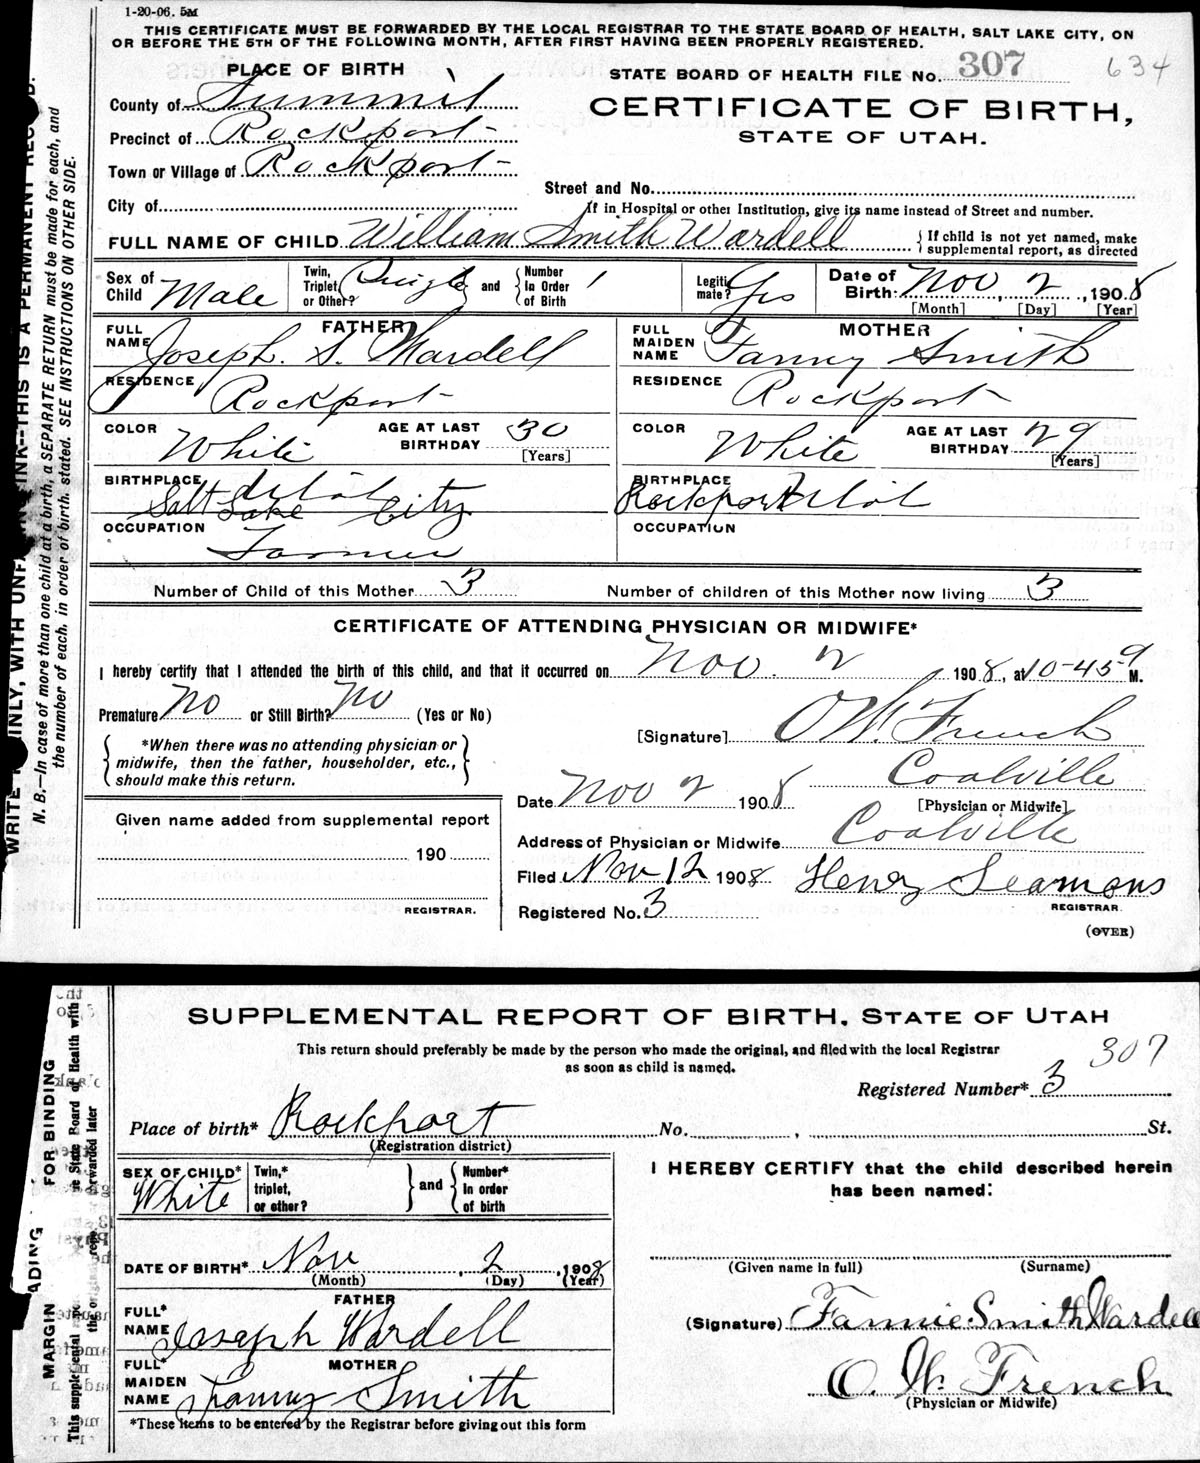 1-20-06. 5M
THIS CERTIFICATE MUST BE FORWARDED BY THE LOCAL REGISTRAR TO THE STATE BOARD OF HEALTH, SALT LAKE CITY, ON
OR BEFORE THE 5TH OF THE FOLLOWING MONTH, AFTER FIRST HAVING BEEN PROPERLY REGISTERED.
PLACE OF BIRTH
STATE BOARD OF HEALTH FILE No. 307 634
County of Summit
CERTIFICATE OF BIRTH,
Precinct of Rockport
STATE OF UTAH.
Town or Village of Rockport
Street and No.
City of
If in Hospital or other Institution, give its name instead of Street and number.
FULL NAME OF CHILD William Smith Wardell { If child is not yet named, make supplemental report, as directed
Sex of Child Male Twin, Triplet, or Other? Single and { Number In Order of Birth 1 Legitimate? Yes Date of Birth: Nov 2, 1908
[Month] [Day] [Year]
FATHER
FULL NAME Joseph. S. Wardell
RESIDENCE Rockport
COLOR White AGE AT LAST BIRTHDAY 30 [Years]
BIRTHPLACE Salt Lake City Utah
OCCUPATION Farmer
MOTHER
FULL MAIDEN NAME Fanny Smith
RESIDENCE Rockport
COLOR White AGE AT LAST BIRTHDAY 29 [Years]
BIRTHPLACE Rockport Utah
OCCUPATION
Number of Child of this Mother 3 Number of children of this Mother now living 3
CERTIFICATE OF ATTENDING PHYSICIAN OR MIDWIFE*
I hereby certify that I attended the birth of this child, and that it occurred on Nov. 2, 1908, at 10-45 M.
Premature No or Still Birth? No (Yes or No)
{ *When there was no attending physician or
midwife, then the father, householder, etc.,
should make this return. }
[Signature] O W. French
Coalville
Date Nov 2 1908 [Physician or Midwife]
Address of Physician or Midwife Coalville
Filed Nov 12 1908 Henry Seamons
REGISTRAR.
Registered No. 3
(OVER)
Given name added from supplemental report
190
REGISTRAR.
N. B.—In case of more than one child at a birth, a SEPARATE RETURN must be made for each, and
the number of each, in order of birth, stated. SEE INSTRUCTIONS ON OTHER SIDE.
SUPPLEMENTAL REPORT OF BIRTH, STATE OF UTAH
This return should preferably be made by the person who made the original, and filed with the local Registrar
as soon as child is named.
307
Registered Number* 3
Place of birth* Rockport No. , St.
(Registration district)
SEX OF CHILD* White Twin,* triplet, or other? } and { Number* In order of birth
DATE OF BIRTH* Nov, 2, 1908
(Month) (Day) (Year)
FATHER
FULL* NAME Joseph Wardell
MOTHER
FULL* MAIDEN NAME Fanny Smith
*These items to be entered by the Registrar before giving out this form
I HEREBY CERTIFY that the child described herein
has been named:
(Given name in full) (Surname)
(Signature) Fannie Smith Wardell
O. W. French
(Physician or Midwife)
MARGIN FOR BINDING